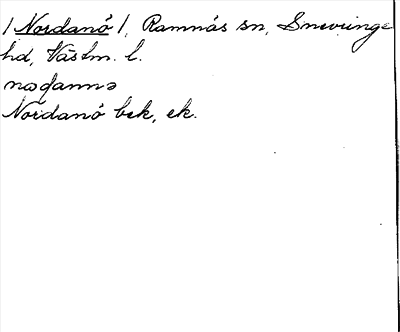 / Nordanö /, Ramnäs sn, Snevringe
hd, Västm. l.
Nordanö bek, ek.